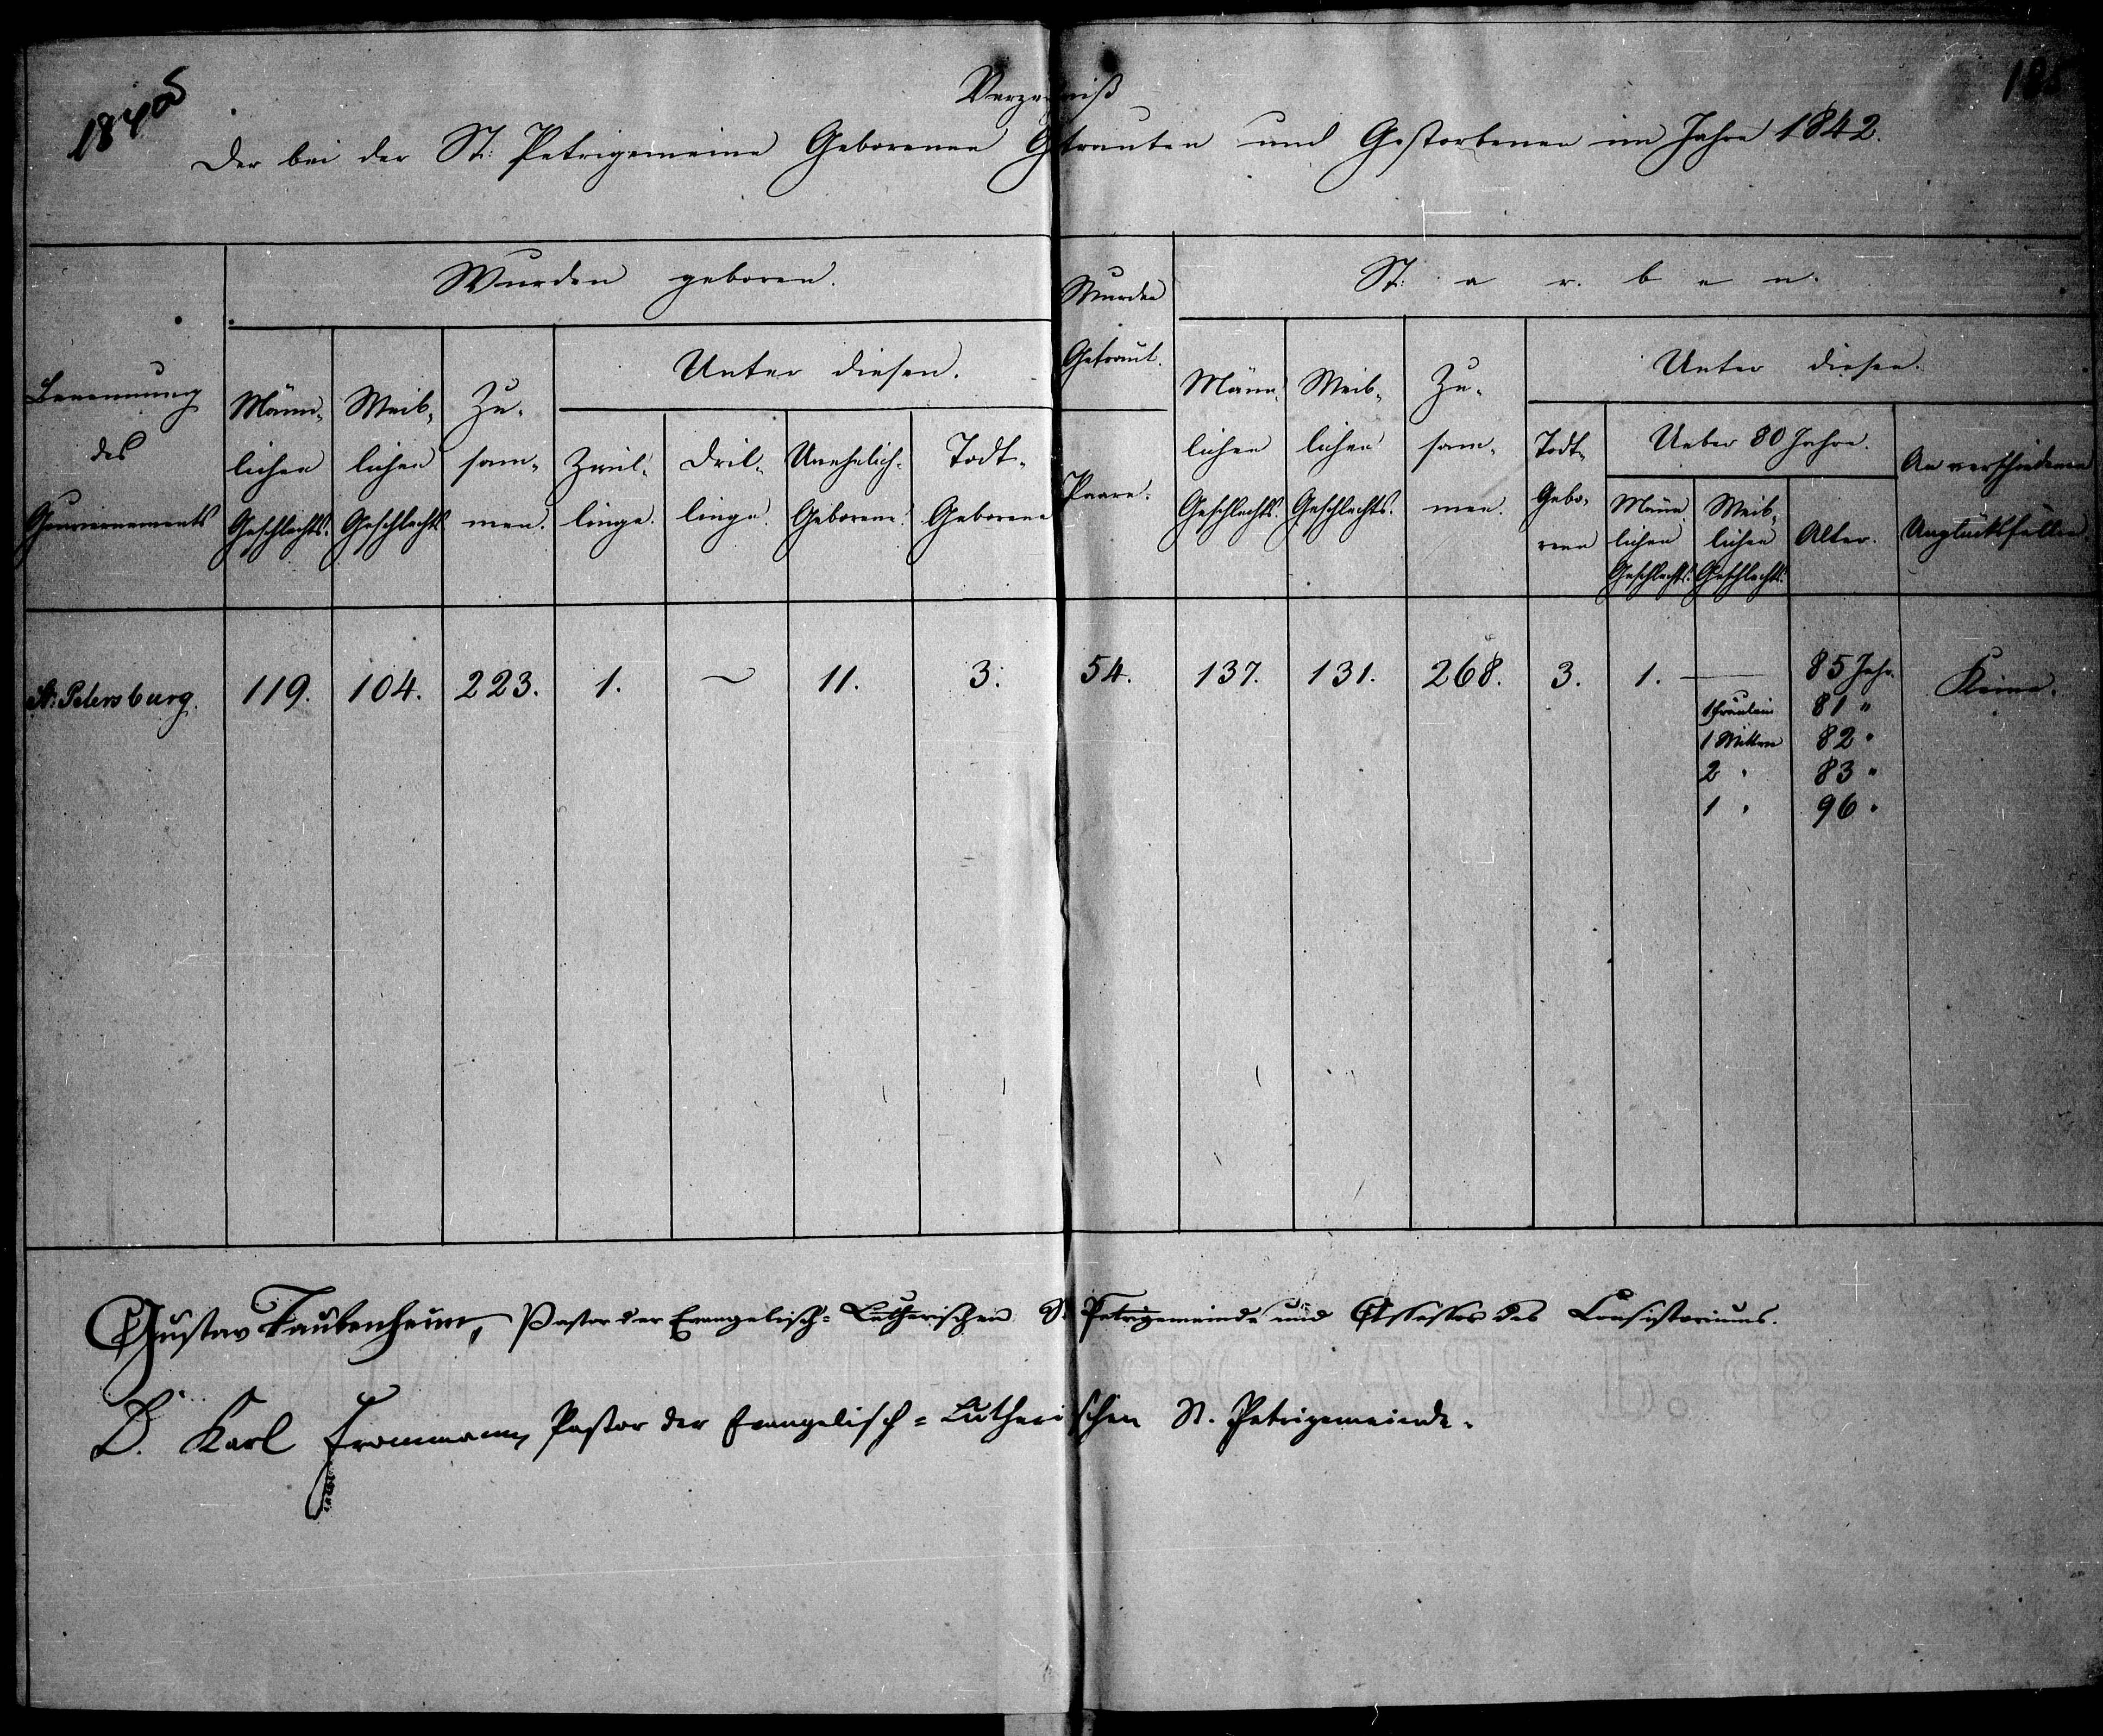 1842
185
Verzeichniß
Der bei der St: Petrigemeine Geborenen Getrauten und Gestorbenen im Jahre 1842.
Benennung
des
Gouvernements
Wurden geboren.
Männ-
lichen
Geschlechts.
Weib-
lichen
Geschlechts
Zu-
sam-
men.
Unter diesen.
Zwil-
linge.
Dril-
linge.
Unehelich-
Geborene.
Todt-
Geborene
Wurden
Getraut.
Paare.
St: a r. b e n.
Männ-
lichen
Geschlechts.
Weib-
lichen
Geschlechts.
Zu-
sam-
men.
Unter diesen.
Todt-
Gebo-
rene
Ueber 80 Jahre.
Männ
lichen
Geschlechts.
Weib-
lichen
Geschlechts.
Alter.
An verschiedenen
Unglücksfällen
St: Petersburg. 119. 104. 223. 1. ~ 11. 3. 54. 137. 131. 268. 3. 1. — 85 Jahr. Keine.
1 Fräulein 81 "
1 Wittwe 82 "
2 " 83 "
1 " 96 "
Gustav Taubenheim, Pastor der Evangelisch-Lutherischen St. Petrigemeinde und Assessor des Consistoriums.
D. Karl Frommann, Pastor der Evangelisch-Lutherischen St. Petrigemeinde.